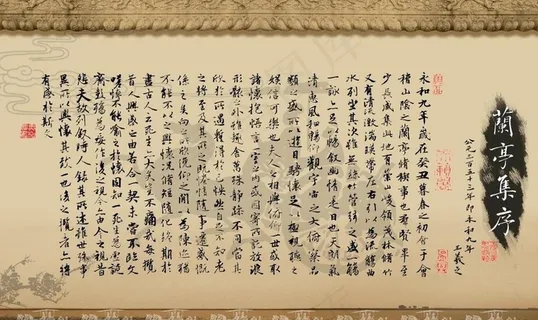 蘭亭集序
公元三百五十三年即永和九年
王羲之
永和九年歲在癸丑暮春之初會于會
稽山陰之蘭亭脩稧事也群賢畢至
少長咸集此地有崇山峻領茂林脩竹
又有清流激湍暎帶左右引以為流觴曲
水列坐其次雖無絲竹管弦之盛一觴
一詠亦足以暢叙幽情是日也天朗氣
清惠風和暢仰觀宇宙之大俯察品
類之盛所以遊目騁懷足以極視聽之
娛信可樂也夫人之相與俯仰一世或取
諸懷抱悟言一室之內或因寄所託放浪
形骸之外雖趣舍萬殊靜躁不同當其
欣於所遇暫得於己怏然自足不知老
之將至及其所之既惓情隨事遷感慨
係之矣向之所欣俛仰之間以為陳迹猶
不能不以之興懷況脩短隨化終期於
盡古人云死生亦大矣豈不痛哉每攬
昔人興感之由若合一契未嘗不臨文
嗟悼不能喻之於懷固知一死生為虛誕
齊彭殤為妄作後之視今亦由今之視昔
悲夫故列叙時人錄其所述雖世殊事
異所以興懷其致一也後之攬者亦將
有感於斯文